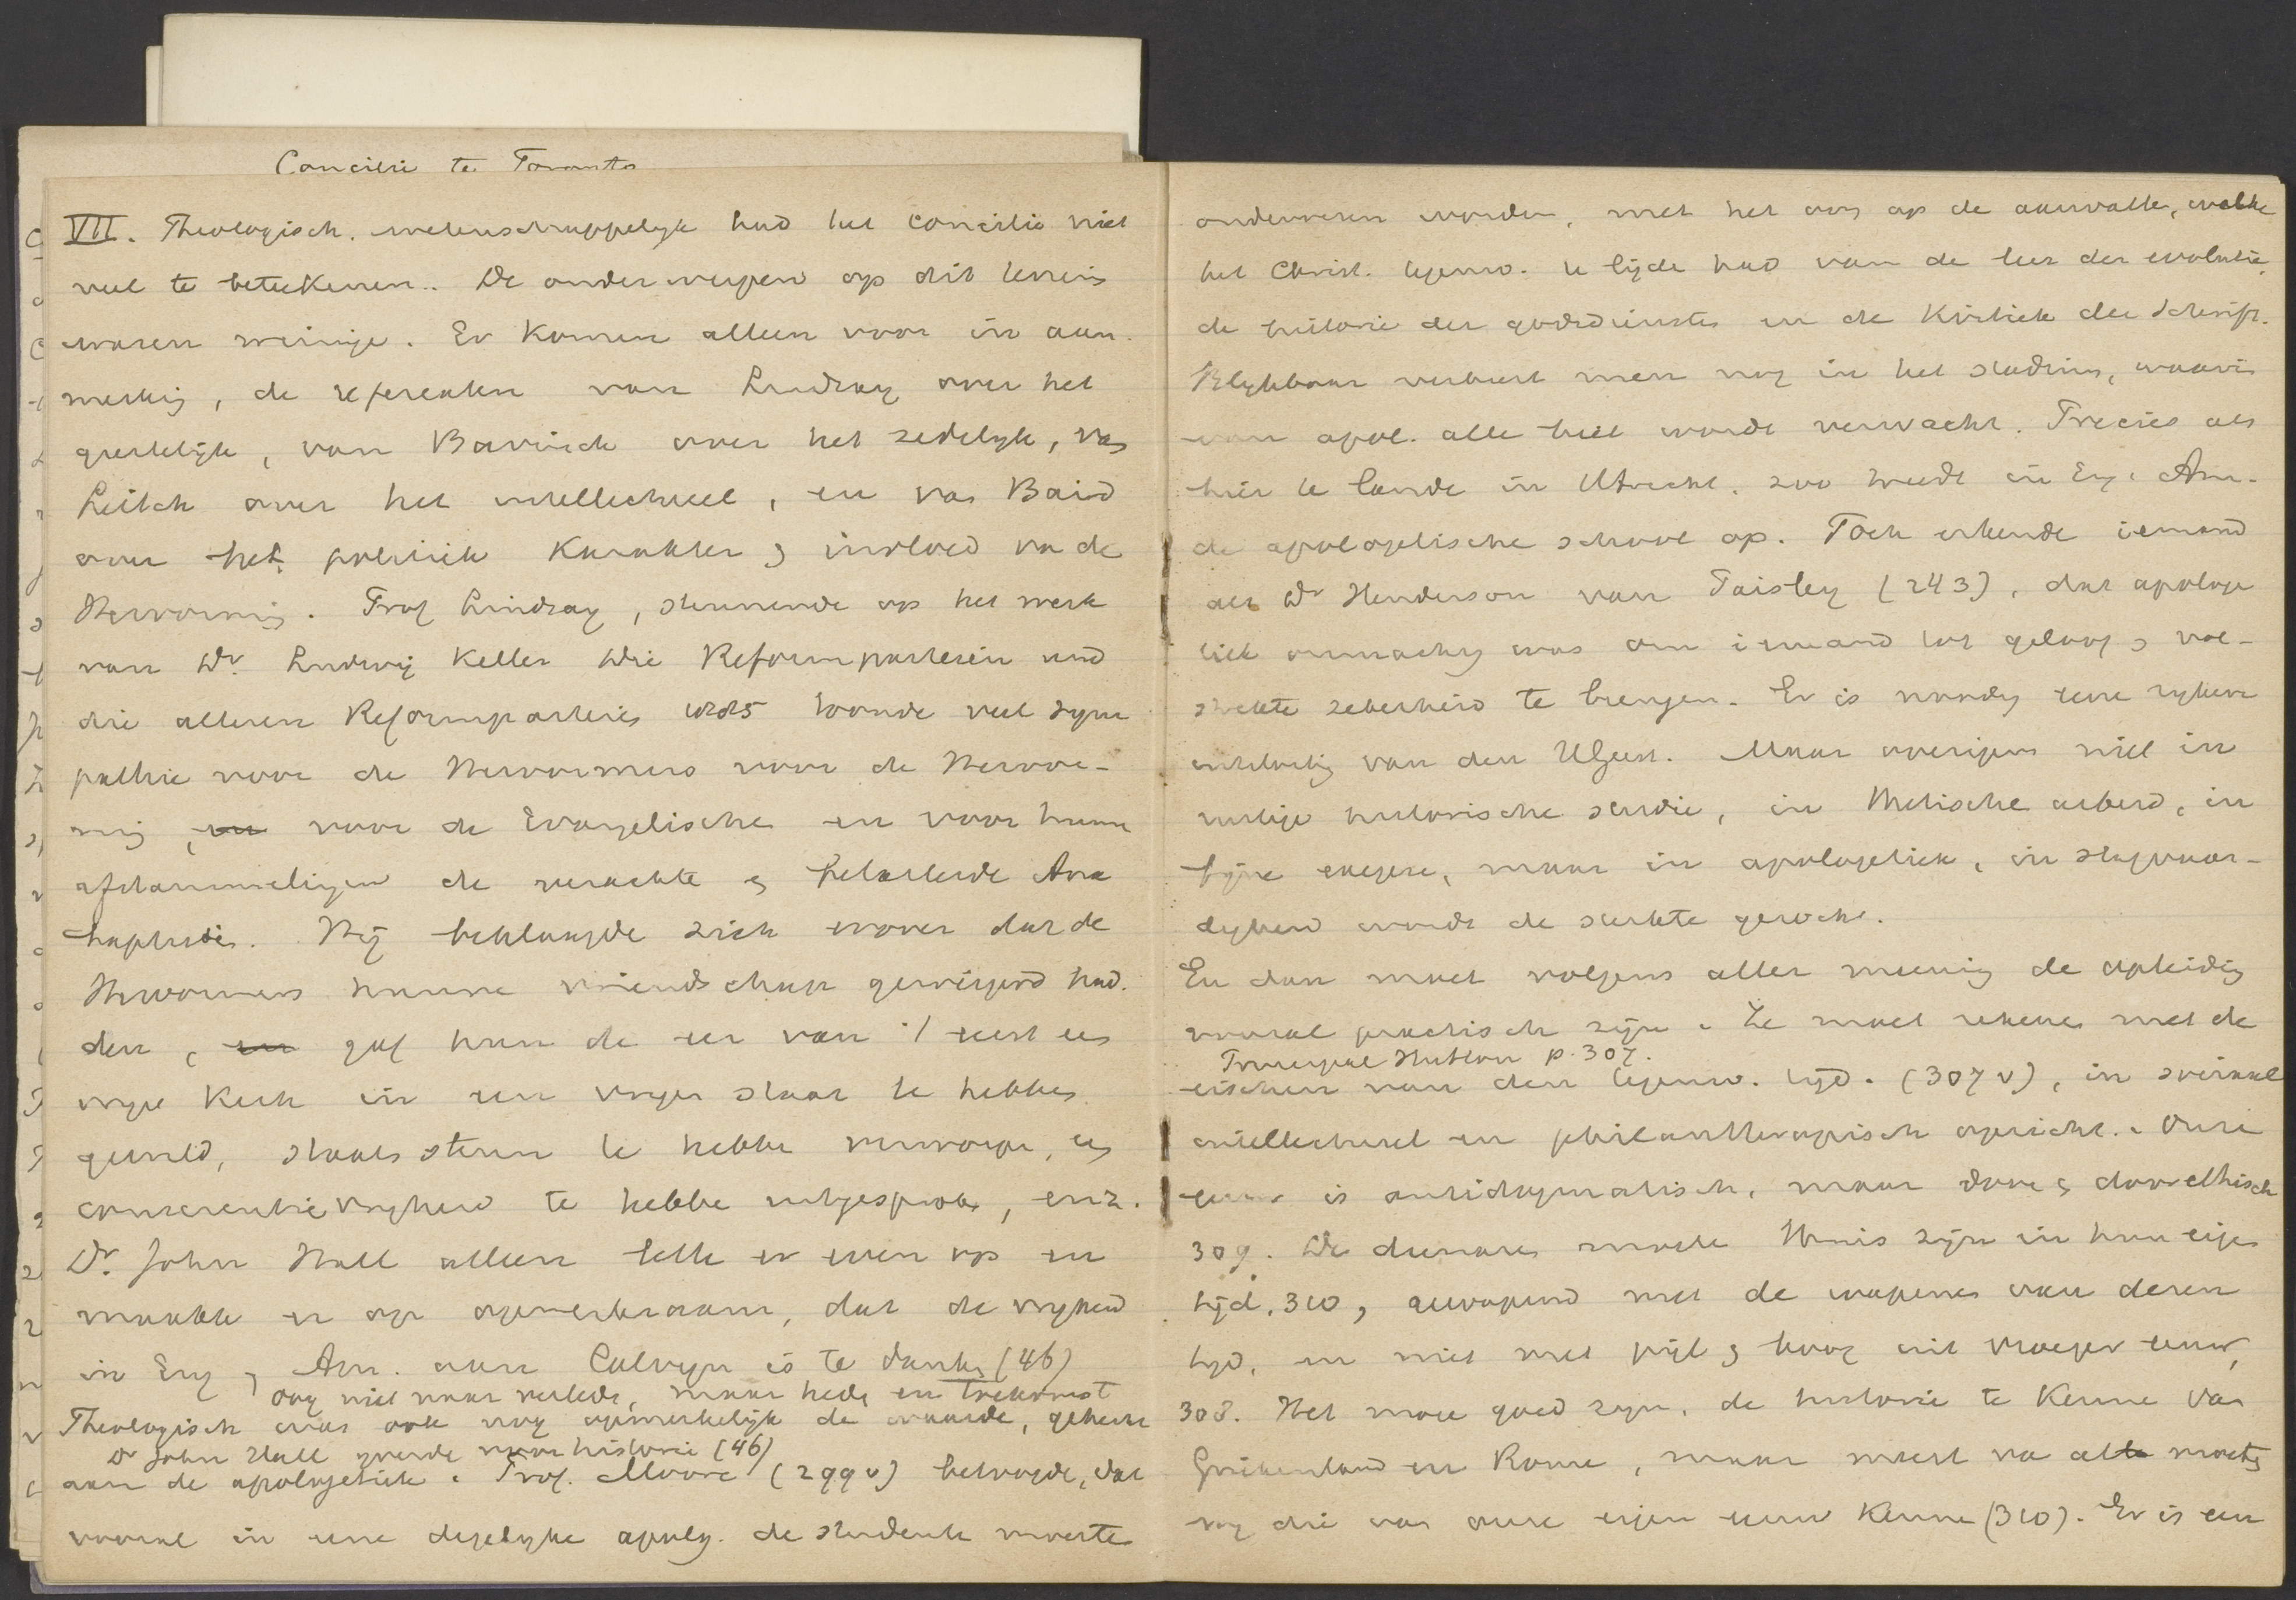 Concilie te Toronto
VII. Theologisch. wetenschappelyk had het concilie niet
veel te beteekenen. De onderwerpen op dit terrein
waren weinige. Er komen alleen voor in aan-
merking, de referaten van Lindsay over het
geestelijk, van Bavinck over het zedelyk, van
Leitch over het intellectueel, en van Baird
over het politiek karakter & invloed van de
Hervorming. Prof Lindsay, steunende op het werk
van Dr. Ludwig Keller Die Reformparteien und
die alteren Reformparteien 1885 toonde veel sym
pathie voor de Hervormers voor de Hervor-
ming, en voor de Evangelische en voor hunne
afstammelingen de verachte & belasterde Ana
baptisten. Hij beklaagde zich erover dat de
Hervormers hunne vriendschap geweigerd had-
den, en gaf hun de eer van 't eerst een
vrye Kerk in een vryen staat te hebben
gewild, staatssteun te hebben verworpen, en
consciëntievryheid te hebbe uitgesproken, enz.
Dr. John Hall alleen telle er even op en
maakte er op opmerkzaam, dat de vryheid
in Eng & Am. aan Calvyn is te danken (46)
oog niet naar verleden, maar heden en toekomst
Theologisch was ook nog opmerkelijk de waarde, gehecht
Dr John Hall yverde voor historie (46)
aan de apologetiek. Prof. Moore (299 v) betoogde, dat
vooral in eene degelyke apolog. de studenten moeste
onderwezen worden, met het oog op de aanvallen, welke
het Christ. tegenw. te lijde had van de leer der evolutie,
de historie der godsdiensten en de Kritiek der Schrift.
Blykbaar verkeert men nog in het stadium, waarin
van apol. alle heil wordt verwacht. Precies als
hier te lande in Utrecht, zoo treedt in Eng. Am.
de apologetische school op. Toch erkende iemand
als Dr Henderson van Paisley (243), dat apologe
tiek onmachtig was om iemand tot geloof & vol-
strekte zekerheid te brengen. Er is noodig eene rykere
uitstorting van den H Geest. Maar overigens niet in
rustige historische studie, in thetische arbeid, in
fijne exegese, maar in apologetiek, in slagvaar-
digheid wordt de sterkte gezocht.
En dan moet volgens aller meening de opleiding
vooral practisch zijn. Ze moet rekenen met de
Principal Hutton p. 307.
eischen van den tegenw. tijd. (307 v), in sociaal
intellectueel en philanthropisch opzicht. Onze
eeuw is antidogmatisch, maar door & door ethisch
309. De dienaren moete thuis zijn in hun eigen
tijd, 310, gewapend met de wapenen van dezen
tijd, en niet met pijl & boog uit vroeger eeuw,
308. Het moge goed zijn, de historie te kenne van
Griekenland en Rome, maar meest van alle moeten
wy die van onze eigen eeuw kenne (310). Er is een